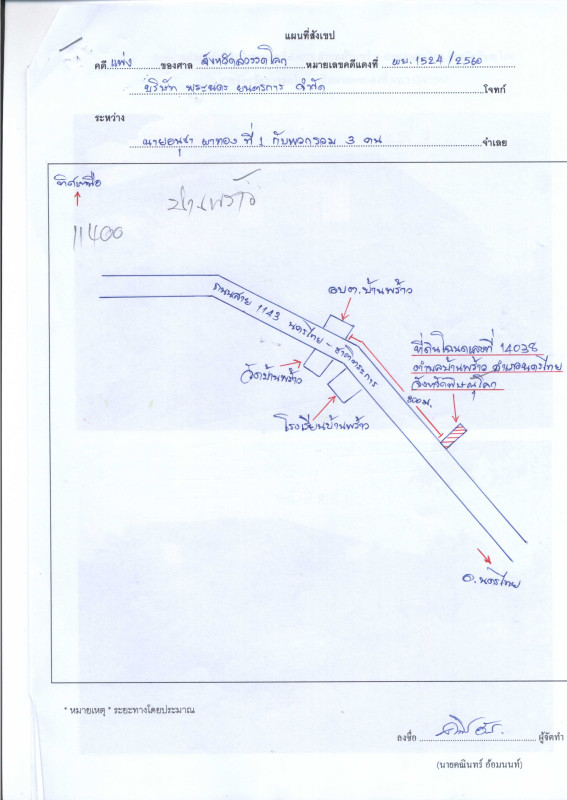 แผนที่สังเขป
คดี แพ่ง ของศาล จังหวัดสวรรคโลก หมายเลขคดีแดงที่ ผบ.1524/2560
บริษัท พระนคร ยนตรการ จำกัด โจทก์
ระหว่าง
นายอนุชา ผาทอง ที่ 1 กับพวกรวม 3 คน จำเลย
ทิศเหนือ
บ้านพร้าว
11400
อบต.บ้านพร้าว
ถนนสาย 1143 นครไทย - ชาติตระการ
ที่ดินโฉนดเลขที่ 14038
ตำบลบ้านพร้าว อำเภอนครไทย
จังหวัดพิษณุโลก
วัดบ้านพร้าว
800ม.
โรงเรียนบ้านพร้าว
อ.นครไทย
* หมายเหตุ * ระยะทางโดยประมาณ
ลงชื่อ ผู้จัดทำ
(นายคณินทร์ อ้อมนนท์)